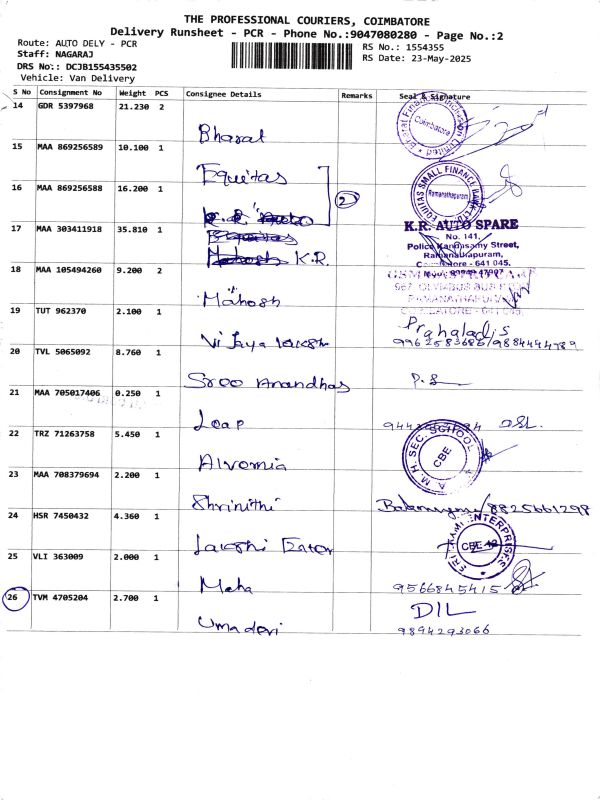 THE PROFESSIONAL COURIERS, COIMBATORE
Delivery Runsheet - PCR - Phone No.:9047080280 - Page No.:2
Route: AUTO DELY - PCR
Staff: NAGARAJ
DRS No:: DCJB155435502
Vehicle: Van Delivery
RS No.: 1554355
RS Date: 23-May-2025
S No Consignment No Weight PCS Consignee Details Remarks Seal & Signature
14 GDR 5397968 21.230 2
Bharat
Coimbatore
15 MAA 869256589 10.100 1
Equitas
EQUITAS SMALL FINANCE BANK LTD
Ramanathapuram
16 MAA 869256588 16.200 1
2
17 MAA 303411918 35.810 1
K.R.
K.R. AUTO SPARE
No. 141,
Police Kandasamy Street,
Ramanathapuram,
Coimbatore - 641 045.
18 MAA 105494260 9.200 2
Mahosh
19 TUT 962370 2.100 1
Vijaya
Prahaladis
9962583686/9884444789
20 TVL 5065092 8.760 1
Sree Anandhas
21 MAA 705017406 0.250 1
Leap
22 TRZ 71263758 5.450 1
Alvernia
A. M. H. SEC. SCHOOL
CBE
23 MAA 708379694 2.200 1
Shrinithi
8825661298
24 HSR 7450432 4.360 1
ENTERPRISES
25 VLI 363009 2.000 1
Maha
9566845415
26 TVM 4705204 2.700 1
Umadevi
DIL
9894293066